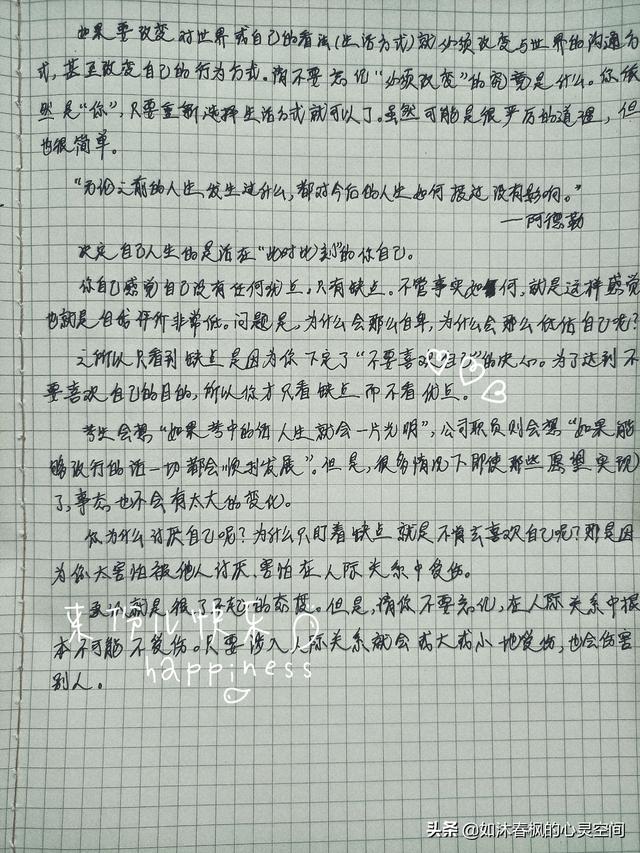 如果要改变对世界或自己的看法(生活方式)就必须改变与世界的沟通方
式,甚至改变自己的行为方式。请不要忘记“必须改变”的究竟是什么。你依
然是“你”,只要重新选择生活方式就可以了。虽然可能是很严厉的道理,但
也很简单。
“无论之前的人生发生过什么,都对今后的人生如何度过没有影响。”
——阿德勒
决定自己人生的是活在“此时此刻”的你自己。
你自己感觉自己没有任何优点,只有缺点。不管事实如何,就是这样感觉
也就是自我评价非常低。问题是,为什么会那么自卑,为什么会那么低估自己呢?
之所以只看到缺点是因为你下定了“不要喜欢自己”的决心。为了达到不
要喜欢自己的目的,所以你才只看缺点而不看优点。
考生会想“如果考中的话人生就会一片光明”,公司职员则会想“如果能
够改行的话一切都会顺利发展”。但是,很多情况下即使那些愿望实现
了,事态也不会有太大的变化。
你为什么讨厌自己呢?为什么只盯着缺点就是不肯去喜欢自己呢?那是因
为你太害怕被他人讨厌、害怕在人际关系中受伤。
就是很了不起的态度。但是,请你不要忘记,在人际关系中根
本不可能不受伤。只要涉入人际关系就会或大或小地受伤,也会伤害
别人。
快来
happiness
头条 @如沐春枫的心灵空间